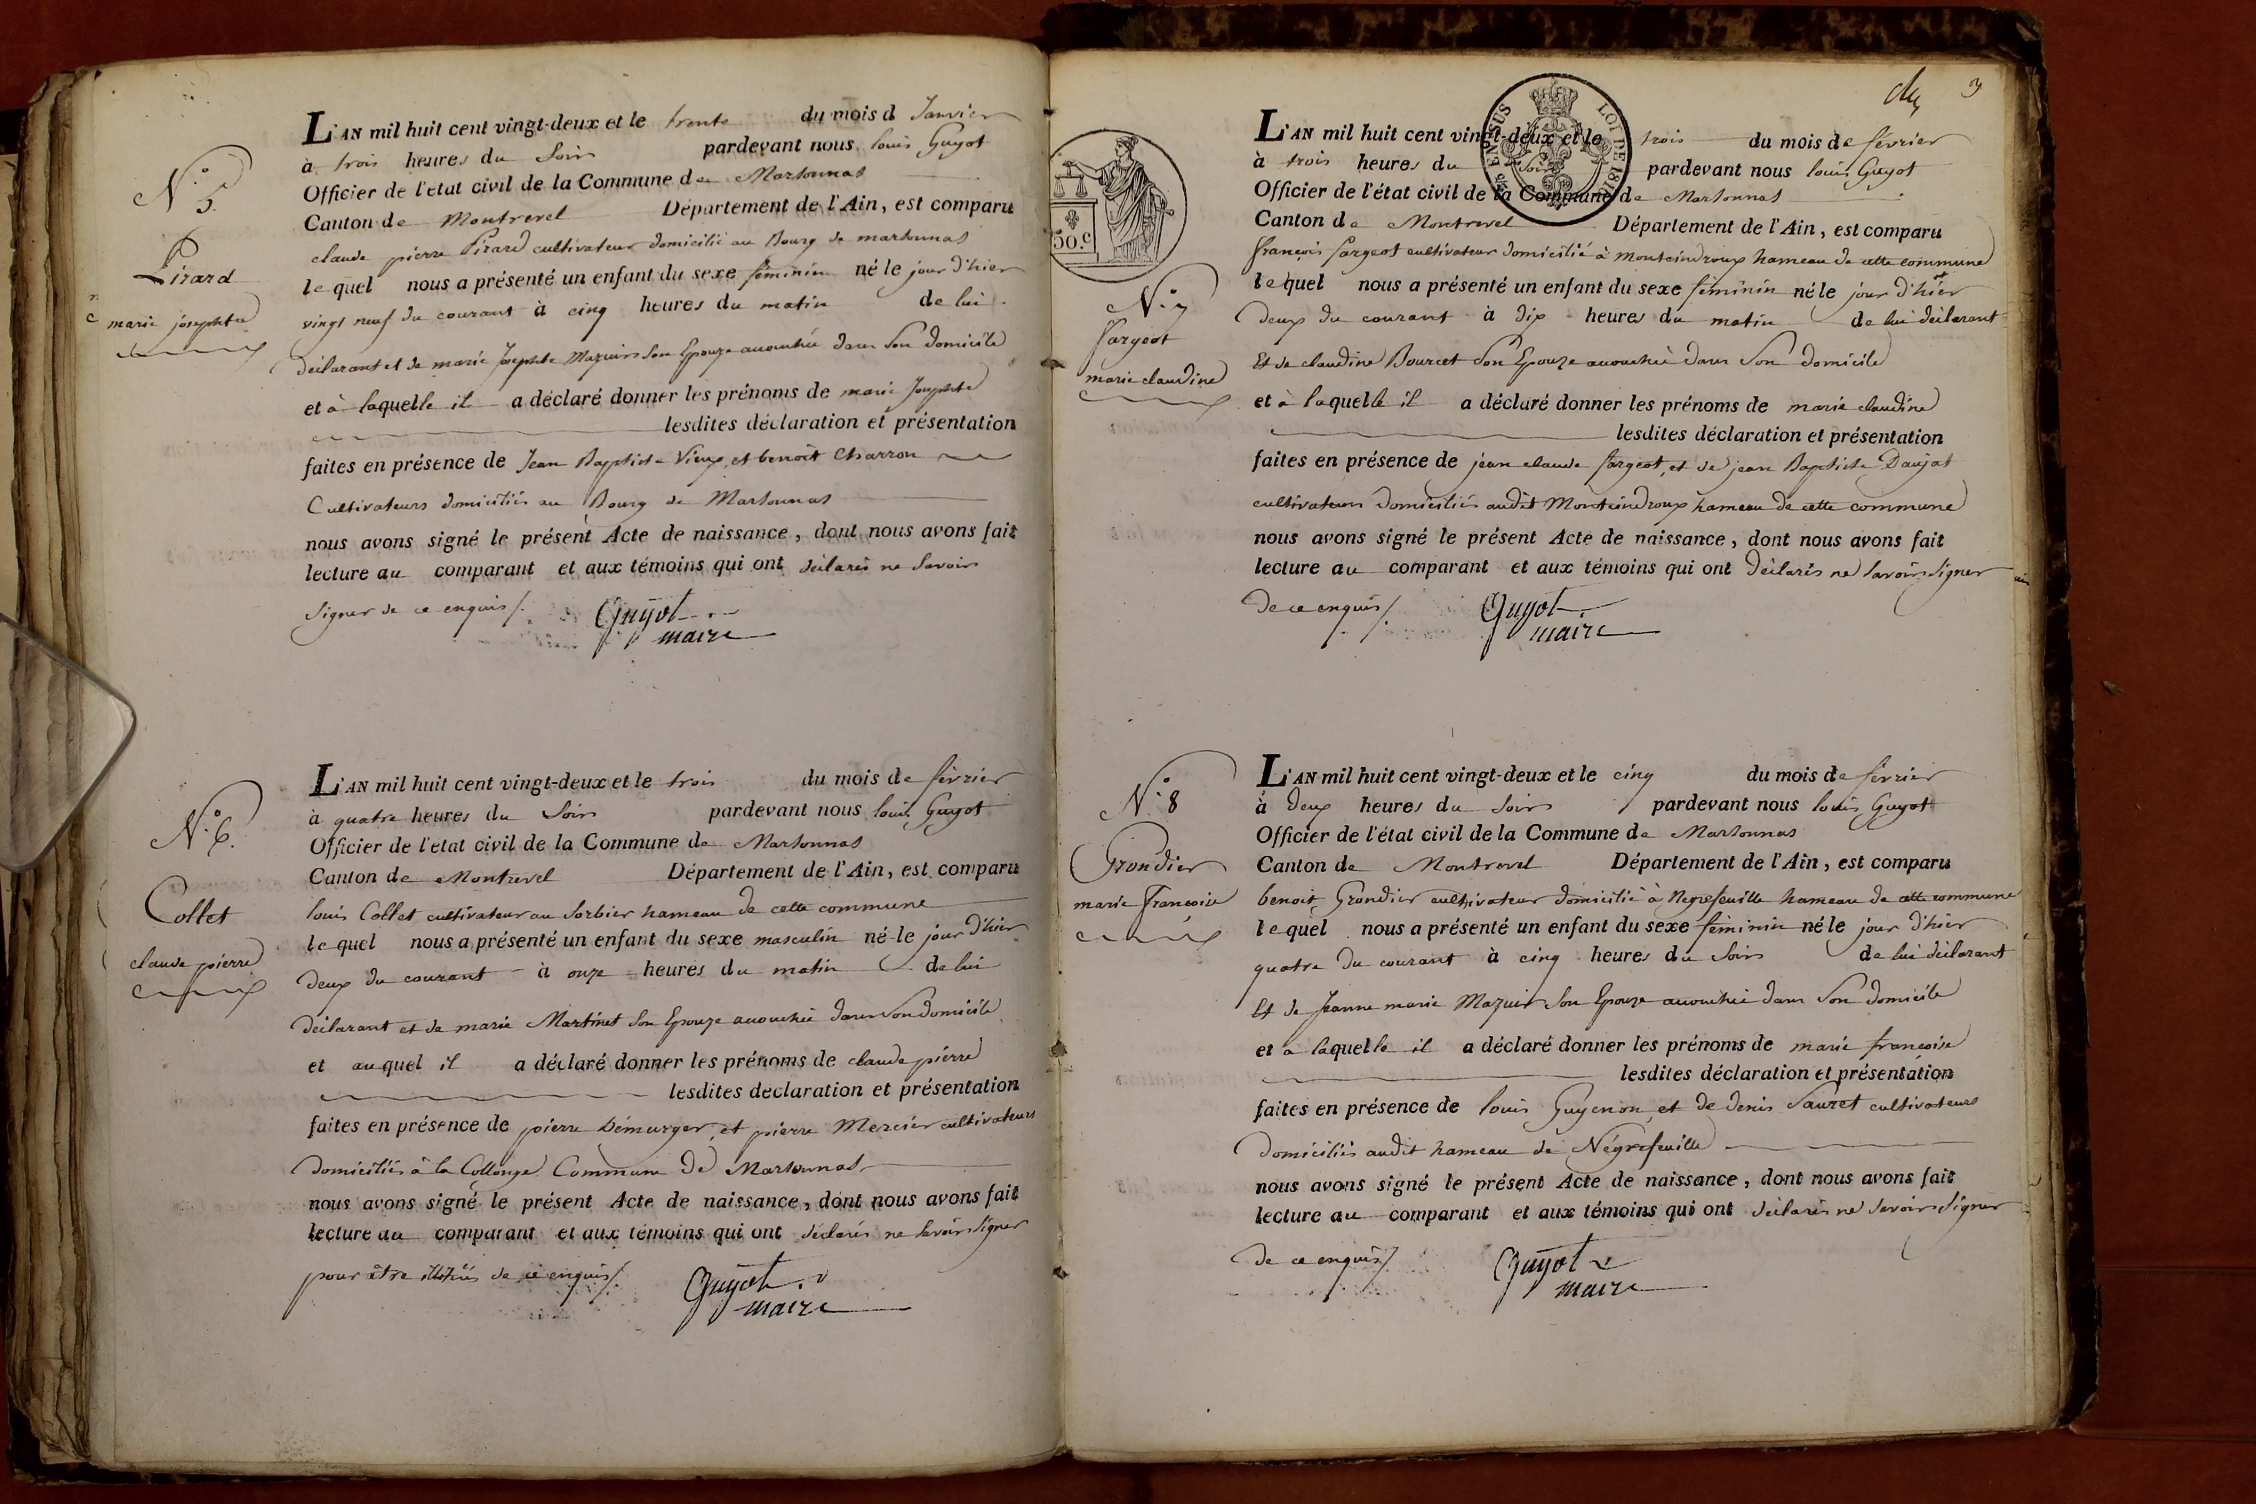 N.° 5.
Pirard
marie josephte
L'AN mil huit cent vingt-deux et le trente du mois d Janvier
à trois heures du Soir pardevant nous louis Guyot
Officier de l'état civil de la Commune de Marsonnas
Canton de Montrevel Département de l'Ain, est comparu
claude pierre Pirard cultivateur domicilié au Bourg de marsonnas
lequel nous a présenté un enfant du sexe féminin né le jour d'hier
vingt neuf du courant à cinq heures du matin de lui
déclarant et de marie Josephte Mazuir son Epouze accouchée dans son domicile
et à laquelle il a déclaré donner les prénoms de marie Josephte
lesdites déclaration et présentation
faites en présence de Jean Baptiste Vieux, et benoit Charron
Cultivateurs domiciliés au Bourg de Marsonnas
nous avons signé le présent Acte de naissance, dont nous avons fait
lecture au comparant et aux témoins qui ont déclarés ne Savoir
Signer de ce enquis/.
Guyot
maire
N.° 6.
Collet
claude pierre
L'AN mil huit cent vingt-deux et le trois du mois de février
à quatre heures du Soir pardevant nous louis Guyot
Officier de l'état civil de la Commune de Marsonnas
Canton de Montrevel Département de l'Ain, est comparu
louis Collet cultivateur au Sorbier hameau de cette commune
lequel nous a présenté un enfant du sexe masculin né le jour d'hier
deux du courant à onze heures du matin de lui
déclarant et de marie Martinet son Epouze accouchée dans son domicile
et auquel il a déclaré donner les prénoms de claude pierre
lesdites déclaration et présentation
faites en présence de pierre Démurger, et pierre Mercier cultivateurs
domiciliés à la Collonge Commune de Marsonnas
nous avons signé le présent Acte de naissance, dont nous avons fait
lecture au comparant et aux témoins qui ont déclarés ne Savoir Signer
pour être illitérés de ce enquis/.
Guyot
maire
3
50.c
LOI DE 181
N.° 7
fargeot
marie claudine
L'AN mil huit cent vingt-deux et le trois du mois de février
à trois heures du Soir pardevant nous louis Guyot
Officier de l'état civil de la Commune de Marsonnas
Canton de Montrevel Département de l'Ain, est comparu
françois fargeot cultivateur domicilié à montcindroux hameau de cette commune
lequel nous a présenté un enfant du sexe féminin né le jour d'hier
deux du courant à dix heures du matin de lui déclarant
Et de claudine Bourcet Son Epouze accouchée dans Son domicile
et à laquelle il a déclaré donner les prénoms de marie claudine
lesdites déclaration et présentation
faites en présence de jean claude fargeot, et de jean Baptiste Daujat
cultivateurs domiciliés audit Montcindroux hameau de cette commune
nous avons signé le présent Acte de naissance, dont nous avons fait
lecture au comparant et aux témoins qui ont déclarés ne Savoir Signer
De ce enquis/.
Guyot
maire
N.° 8
Grondier
marie Françoise
L'AN mil huit cent vingt-deux et le cinq du mois de février
à deux heures du Soir pardevant nous louis Guyot
Officier de l'état civil de la Commune de Marsonnas
Canton de Montrevel Département de l'Ain, est comparu
benoit Grondier cultivateur domicilié à Negrefeuille hameau de cette commune
lequel nous a présenté un enfant du sexe féminin né le jour d'hier
quatre du courant à cinq heures du Soir de lui déclarant
Et de Jeanne marie Mazuir Son Epouze accouchée dans Son domicile
et à laquelle il a déclaré donner les prénoms de marie françoise
lesdites déclaration et présentation
faites en présence de louis Guyenon, et de denis Sauzet cultivateurs
domiciliés audit hameau de Négrefeuille
nous avons signé le présent Acte de naissance, dont nous avons fait
lecture au comparant et aux témoins qui ont déclarés ne Savoir Signer
de ce enquis/.
Guyot
maire